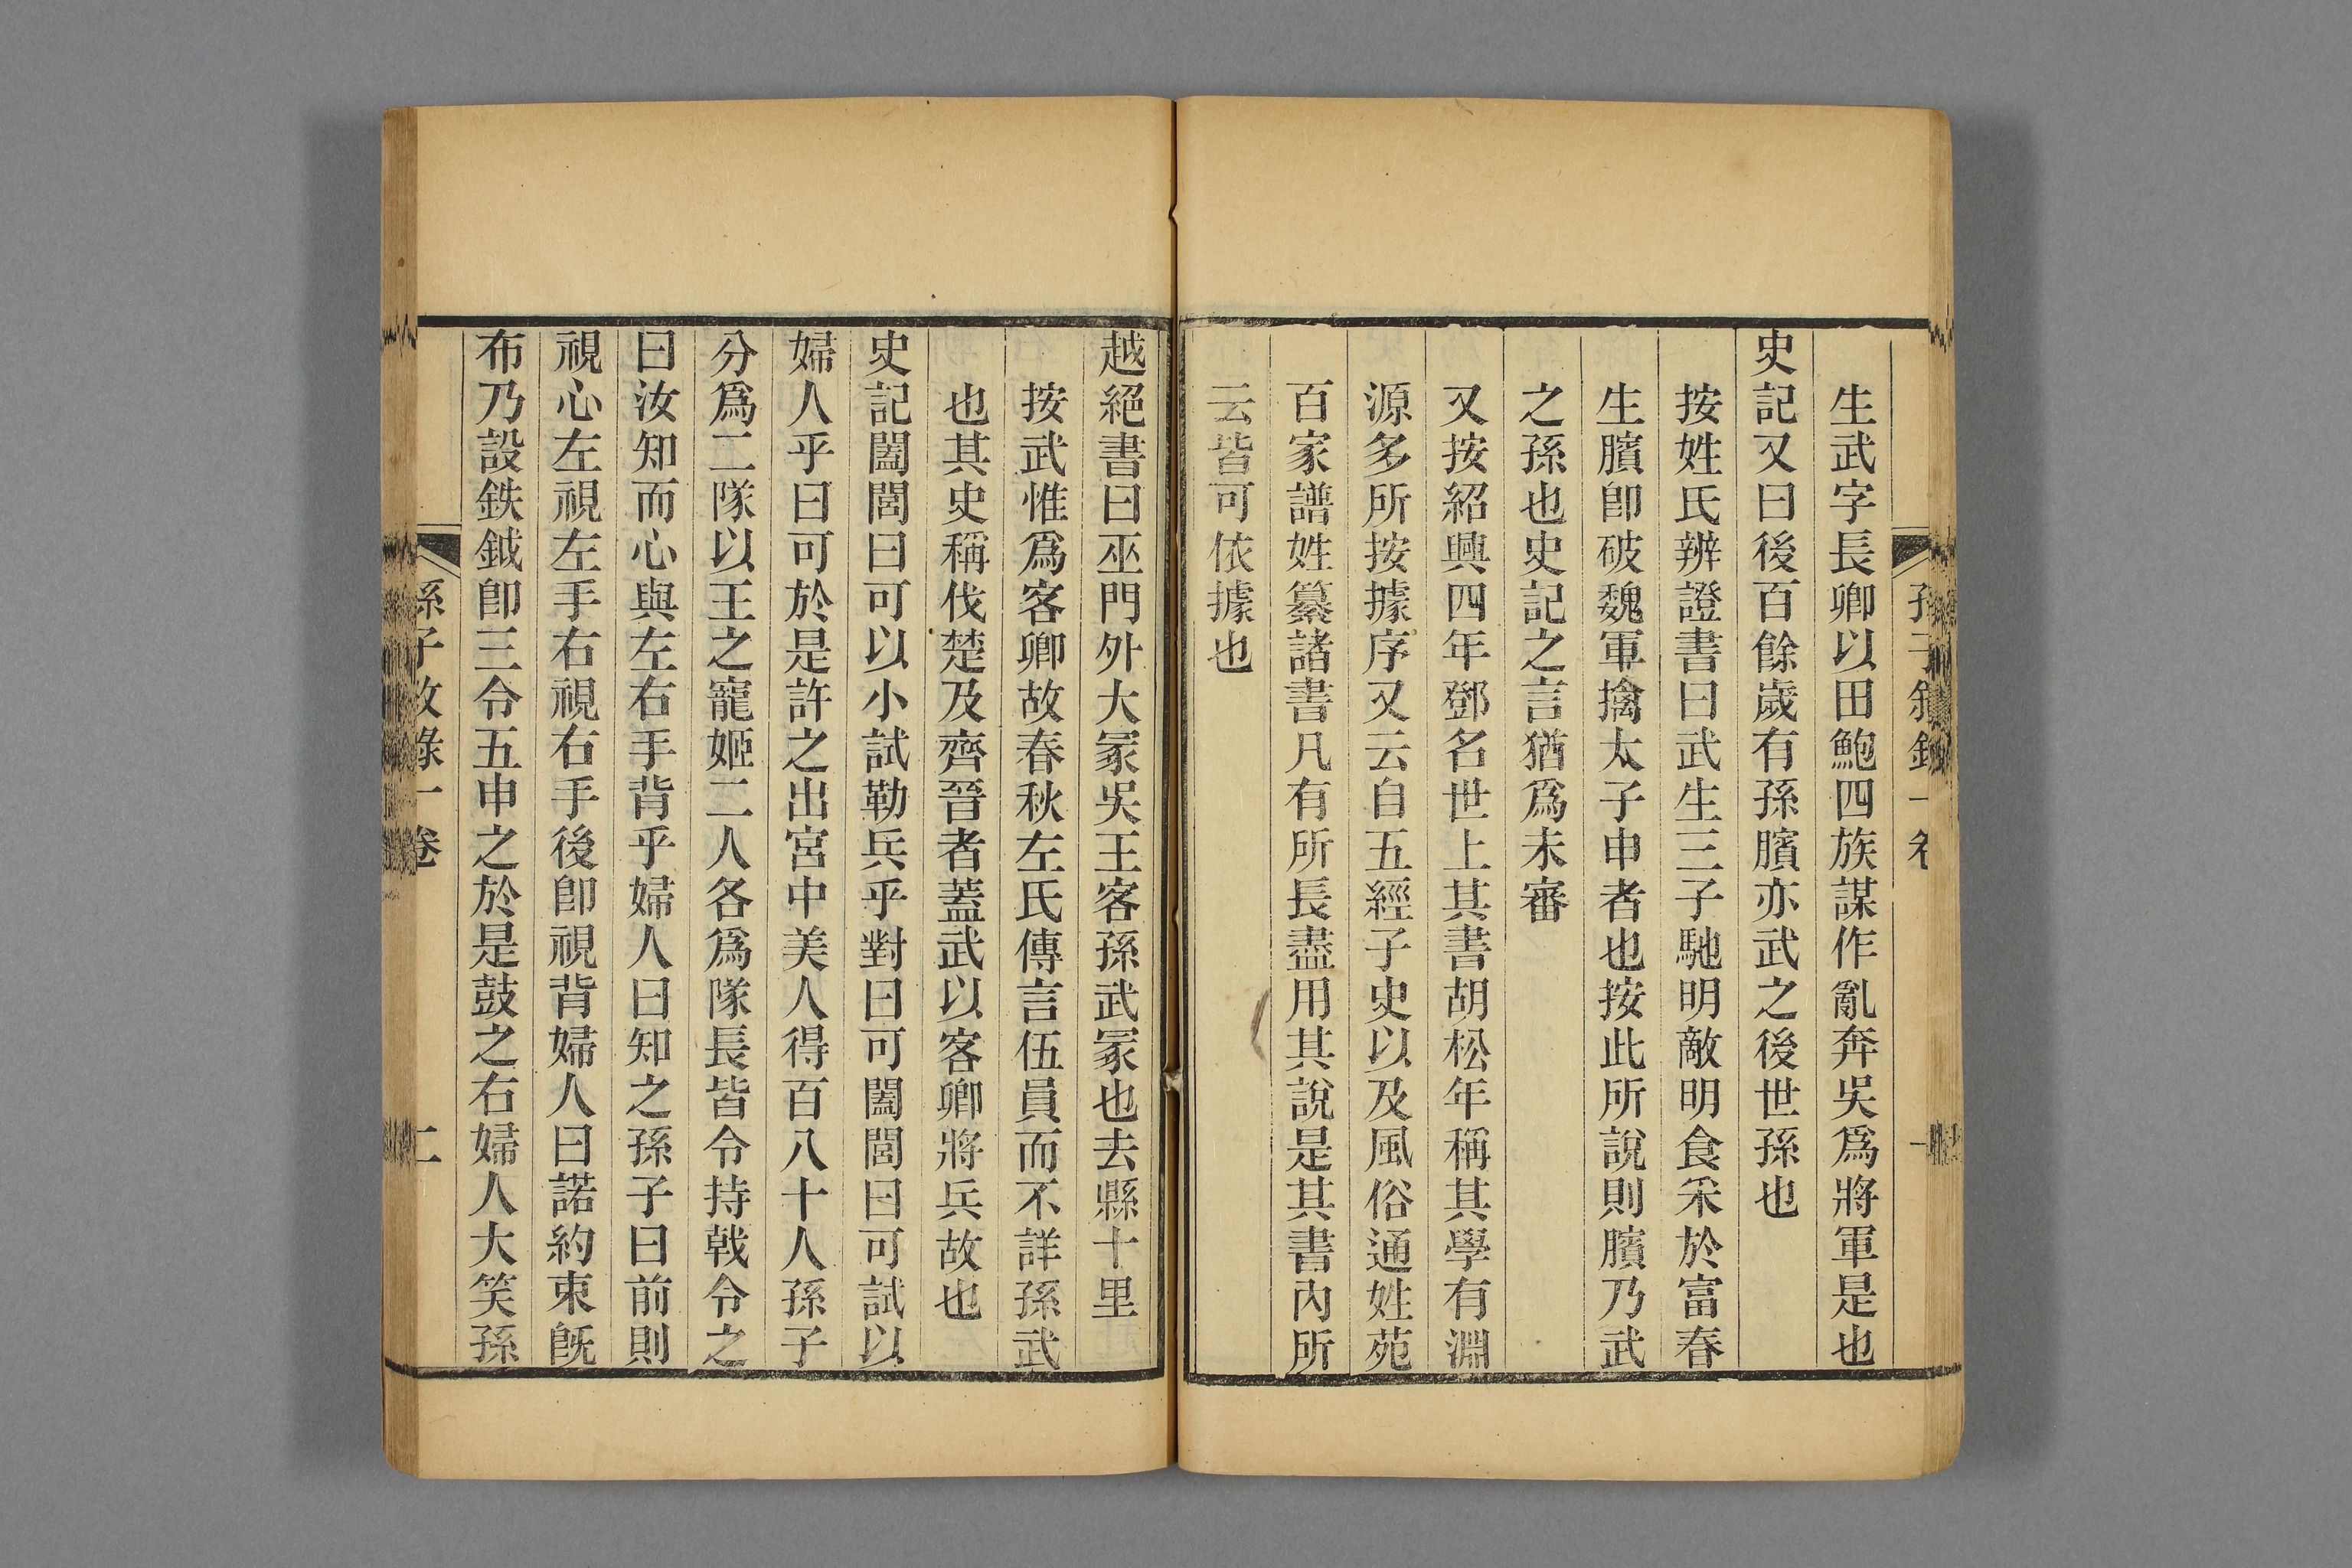 生武字長卿以田鮑四族謀作亂奔吳爲將軍是也
史記又曰後百餘歲有孫臏亦武之後世孫也
按姓氏辨證書曰武生三子馳明敵明食釆於富春
生臏卽破魏軍擒太子申者也按此所說則臏乃武
之孫也史記之言猶爲未審
又按紹興四年鄧名世上其書胡松年稱其學有淵
源多所按據序又云自五經子史以及風俗通姓苑
百家譜姓纂諸書凡有所長盡用其說是其書內所
云皆可依據也
越絕書曰巫門外大冢吳王客孫武冢也去縣十里
按武惟爲客卿故春秋左氏傳言伍員而不詳孫武
也其史稱伐楚及齊晉者蓋武以客卿將兵故也
史記闔閭曰可以小試勒兵乎對曰可闔閭曰可試以
婦人乎曰可於是許之出宮中美人得百八十人孫子
分爲二隊以王之寵姬二人各爲隊長皆令持戟令之
曰汝知而心與左右手背乎婦人曰知之孫子曰前則
視心左視左手右視右手後卽視背婦人曰諾約束旣
布乃設鈇鉞卽三令五申之於是鼓之右婦人大笑孫
孫子敘錄一卷
二